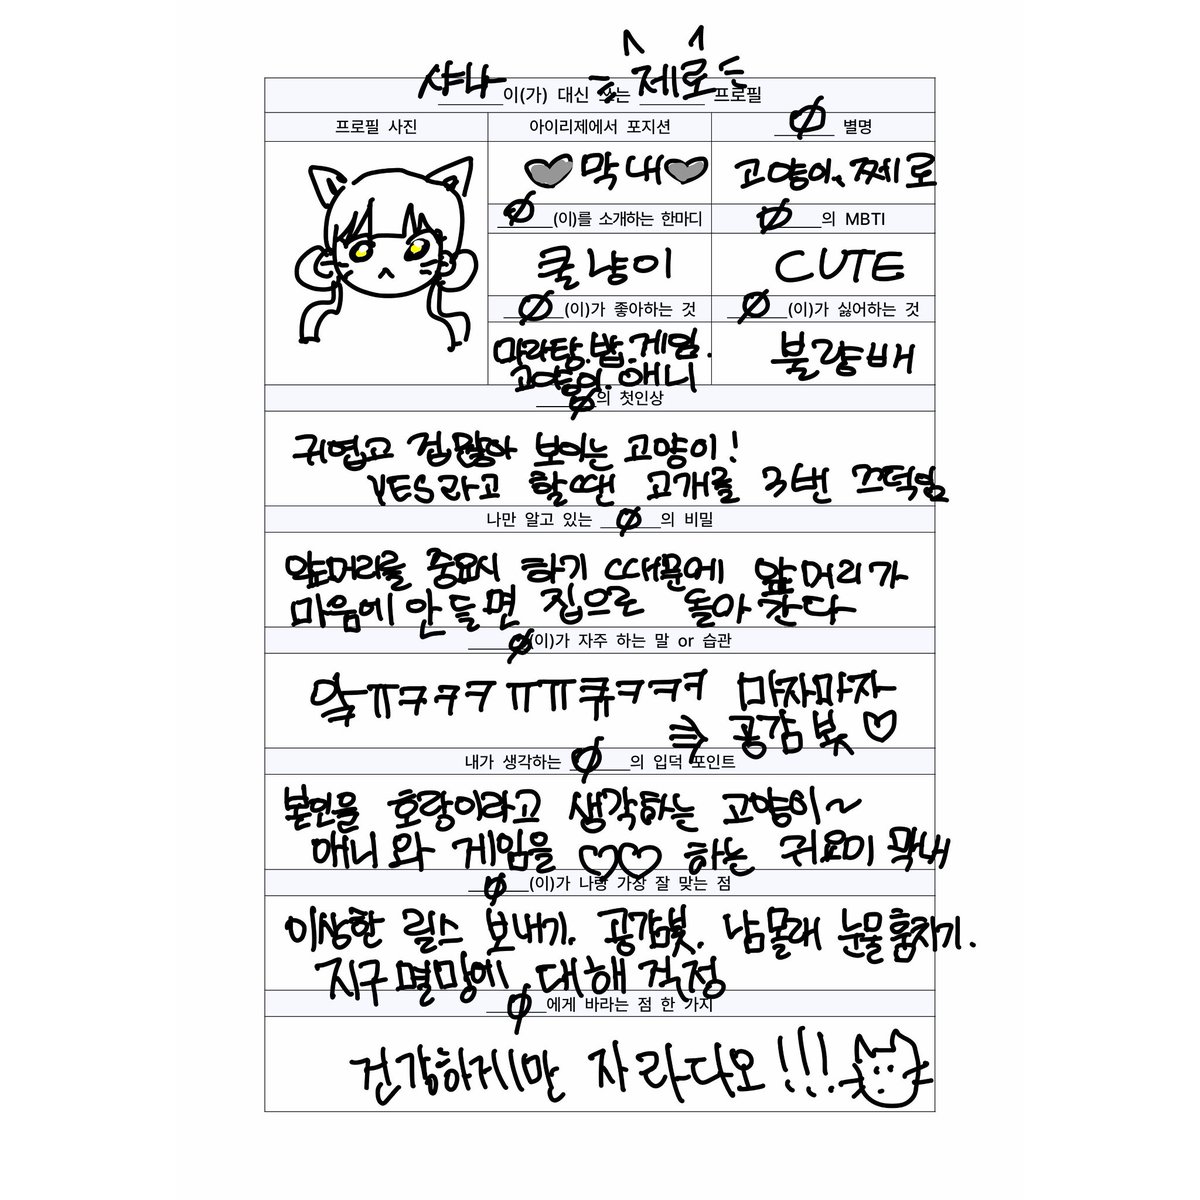 샤나이(가) 대신 쓰는 제로 프로필
프로필 사진
아이리제에서 포지션
Ø 별명
♥막내♥
고양이, 쩨로
Ø(이)를 소개하는 한마디
Ø의 MBTI
쿨냥이
CUTE
Ø(이)가 좋아하는 것
Ø(이)가 싫어하는 것
마라탕.밥.게임.
고양이.애니
불량배
Ø의 첫인상
귀엽고 겁많아 보이는 고양이!
YES라고 할때 고개를 3번 끄덕임
나만 알고 있는 Ø의 비밀
앞머리를 중요시 하기 때문에 앞머리가
마음에 안들면 집으로 돌아간다
Ø(이)가 자주 하는 말 or 습관
앜ㅠㅋㅋㅋ ㅠㅠ큐ㅋㅋㅋ 마자마자
⇒ 공감봇♡
내가 생각하는 Ø의 입덕 포인트
본인을 호랑이라고 생각하는 고양이~
애니와 게임을 ♡♡ 하는 귀요미 막내
Ø(이)가 나랑 가장 잘 맞는 점
이상한 릴스 보내기. 공감봇. 남몰래 눈물훔치기.
지구멸망에 대해 걱정
Ø에게 바라는 점 한 가지
건강하게만 자라다오!!!